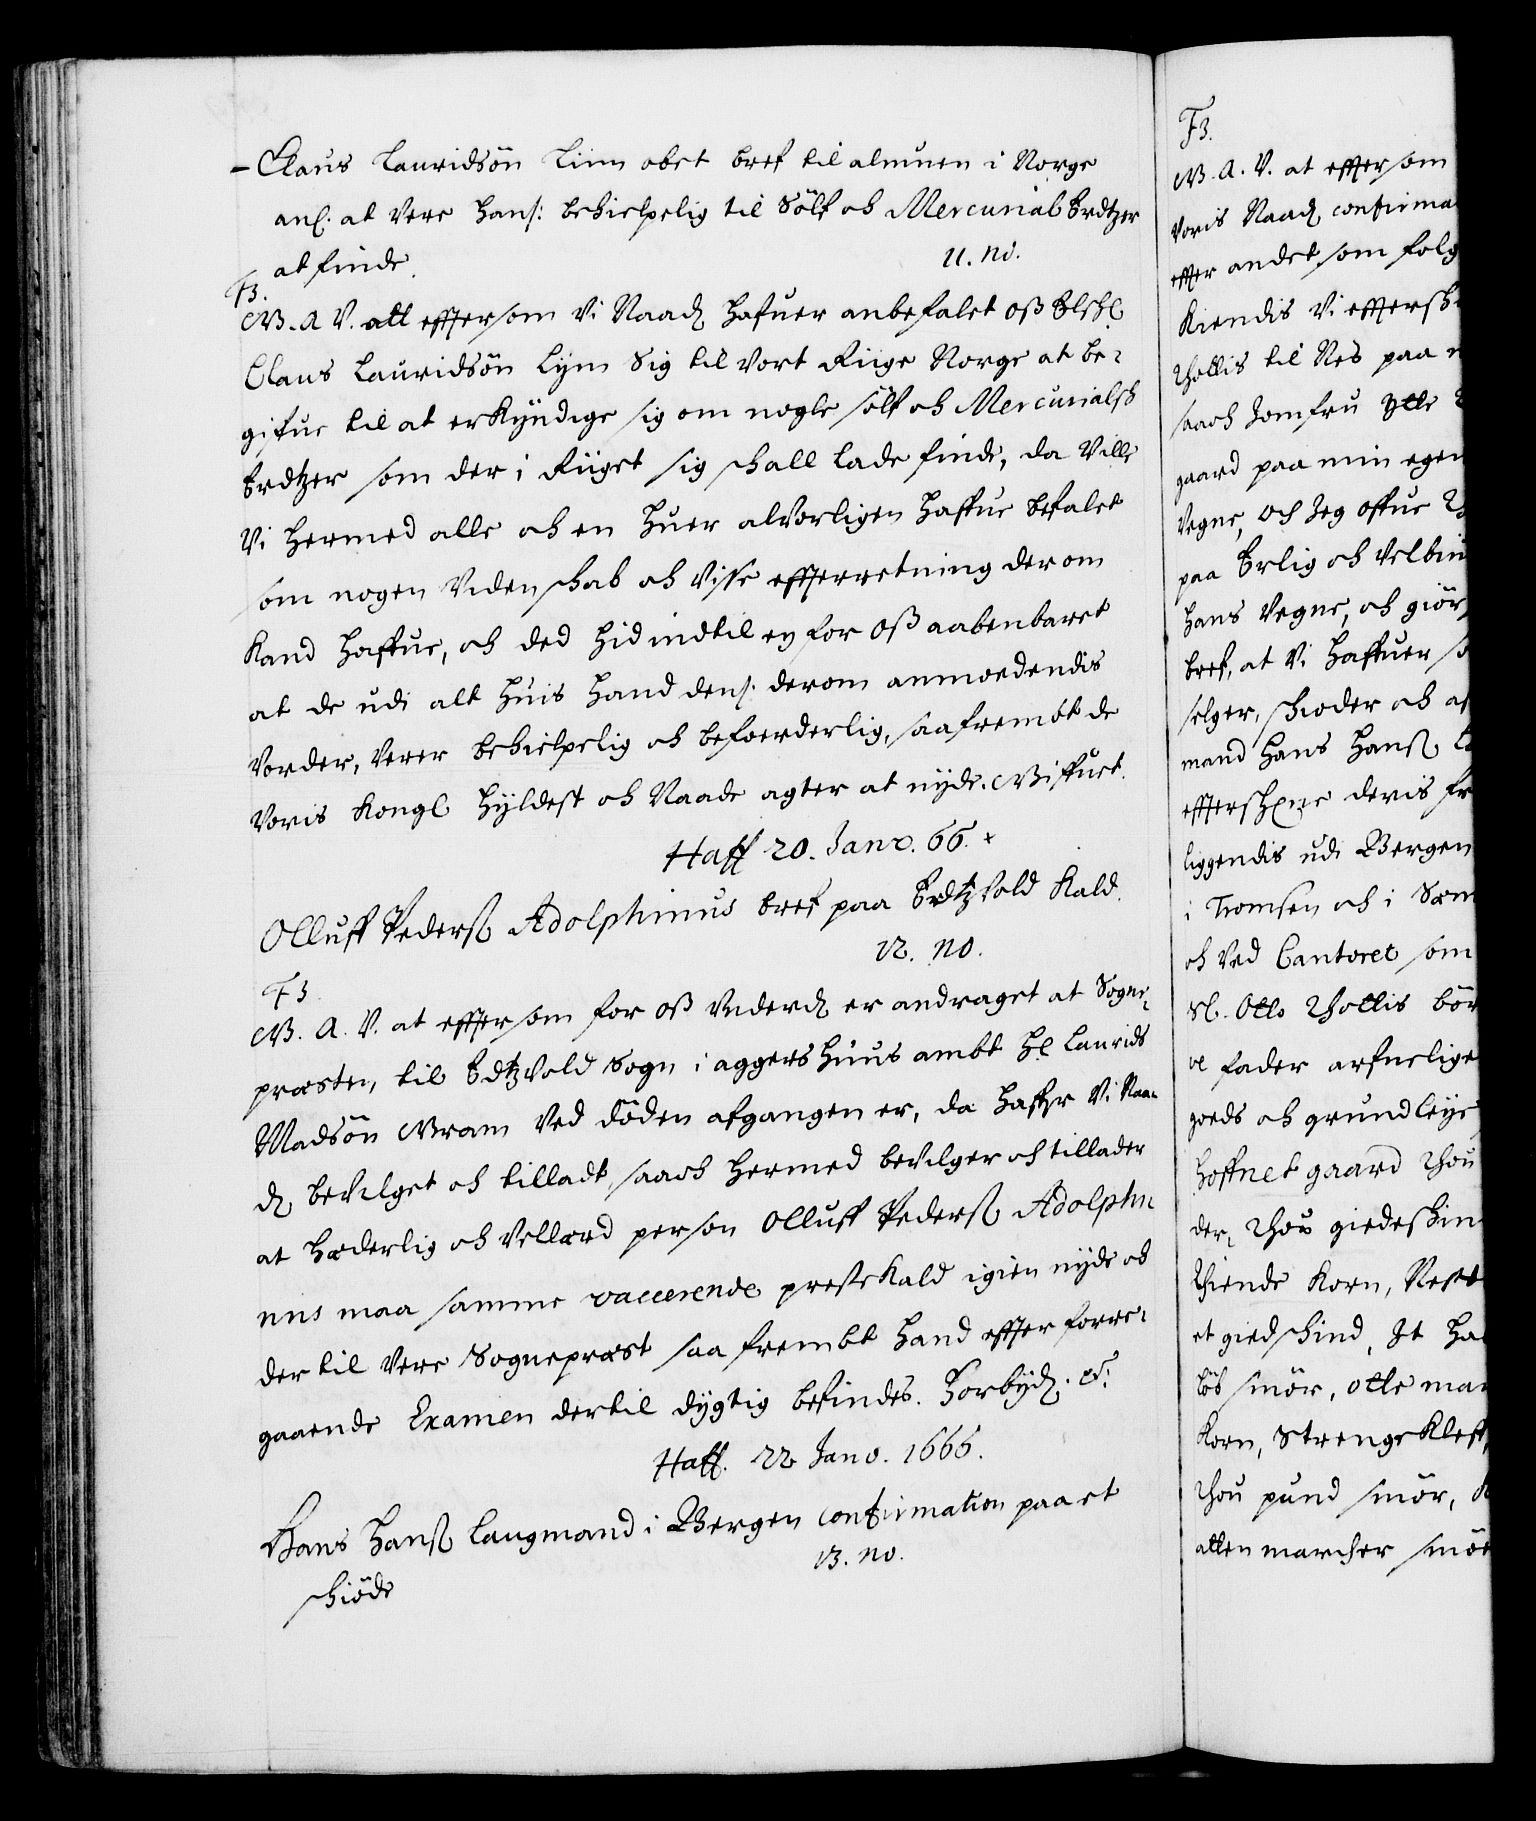 – Claus Lauridsön Liim obet bref til almuen i Norge
anl: at vere hans: behielpelig til Sölf och Mercurial Erdtzer
at finde.
11. no.
F3.
G. A. V. att effter som Vi Naad hafuer anbefalet oß Elskl
Claus Lauridsön Lÿm Sig til vort Riige Norge at be-
gifue til at erkÿndige sig om nogle sölf och Mercurialsch
Erdtzer som der i Riiget sig schall lade finde, da ville
Vi hermed alle och en huer alvorligen haffue befalet
som nogen viden schab och visse effterretning der om
kand haffue, och ded hid indtil eÿ for oß aabenbaret
at de udi alt huis hand dens: derom anmodendis
vorder, verer behielpelig och befoerderlig, saafrembt de
voris Kongl hÿldest och Naade agter at nÿde. Giffuet.
Haff 20. Janv. 66. +
Olluff Pederß Adolphinus bref paa Edtzvold Kald.
12. no.
F3
G. A. V. at effter som for oß underd er andraget at Sogne-
præsten, til Edtzvold Sogn i aggershuus ambt Hl Laurids
Madsön Gram ved döden afgangen er, da haffr Vi Naa-
d bevilget och tilladt, saa och hermed bevilger och tillader
at hæderlig och vellærd person Olluff Pederß Adolphi
nus maa samme vaccerende preste Kald igien nÿde och
der til vere Sognepræst saa frembt hand effter forre-
gaaende Examen dertil dÿgtig befindes. Forbÿd. etc:
Haff. 22 Janv. 1666.
Hans Hanß Laugmand i Bergen confirmation paa et
13. no.
schiöde
F3.
G. A. V. at effter som
voris Naad confirma
effter andet som folg
Kiendis Vi efftersch
Thottis til Nes paa
saa och Jomfru
gaard paa min egen
vegne, och Jeg offue
paa Erlig och velbiu
hans vegne, och giör
bref, at Vi haffuer
selger, schoder och af
mand Hans Hanß
effterschne deris fr
liggendis udi Bergen
i Tromsen och i
och ved Cantoret som
Sl. Otto Thottis bör
fader arfuelige
goeds och grundleÿe
hoffnet gaard thou
der, thou giedeskin
Thiende Korn,
et giedschind, It ha
löb smör, otte mar
Korn, Strenge Kleft,
thou pund smör,
atten marcher smör